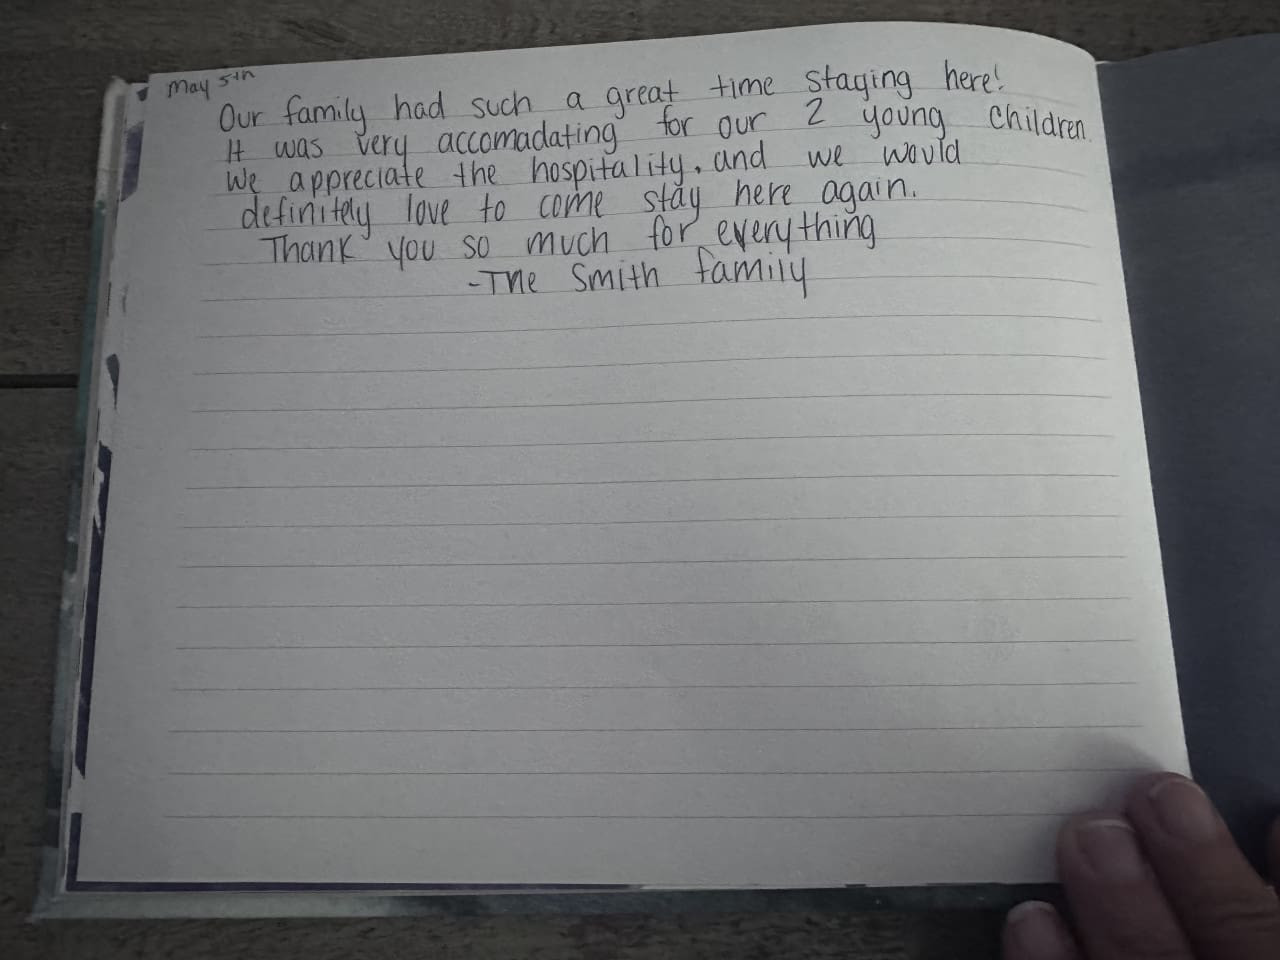 May 5th
Our family had such a great time staying here!
It was very accomadating for our 2 young children
We appreciate the hospitality, and we would
definitely love to come stay here again.
Thank you so much for everything
-The Smith family